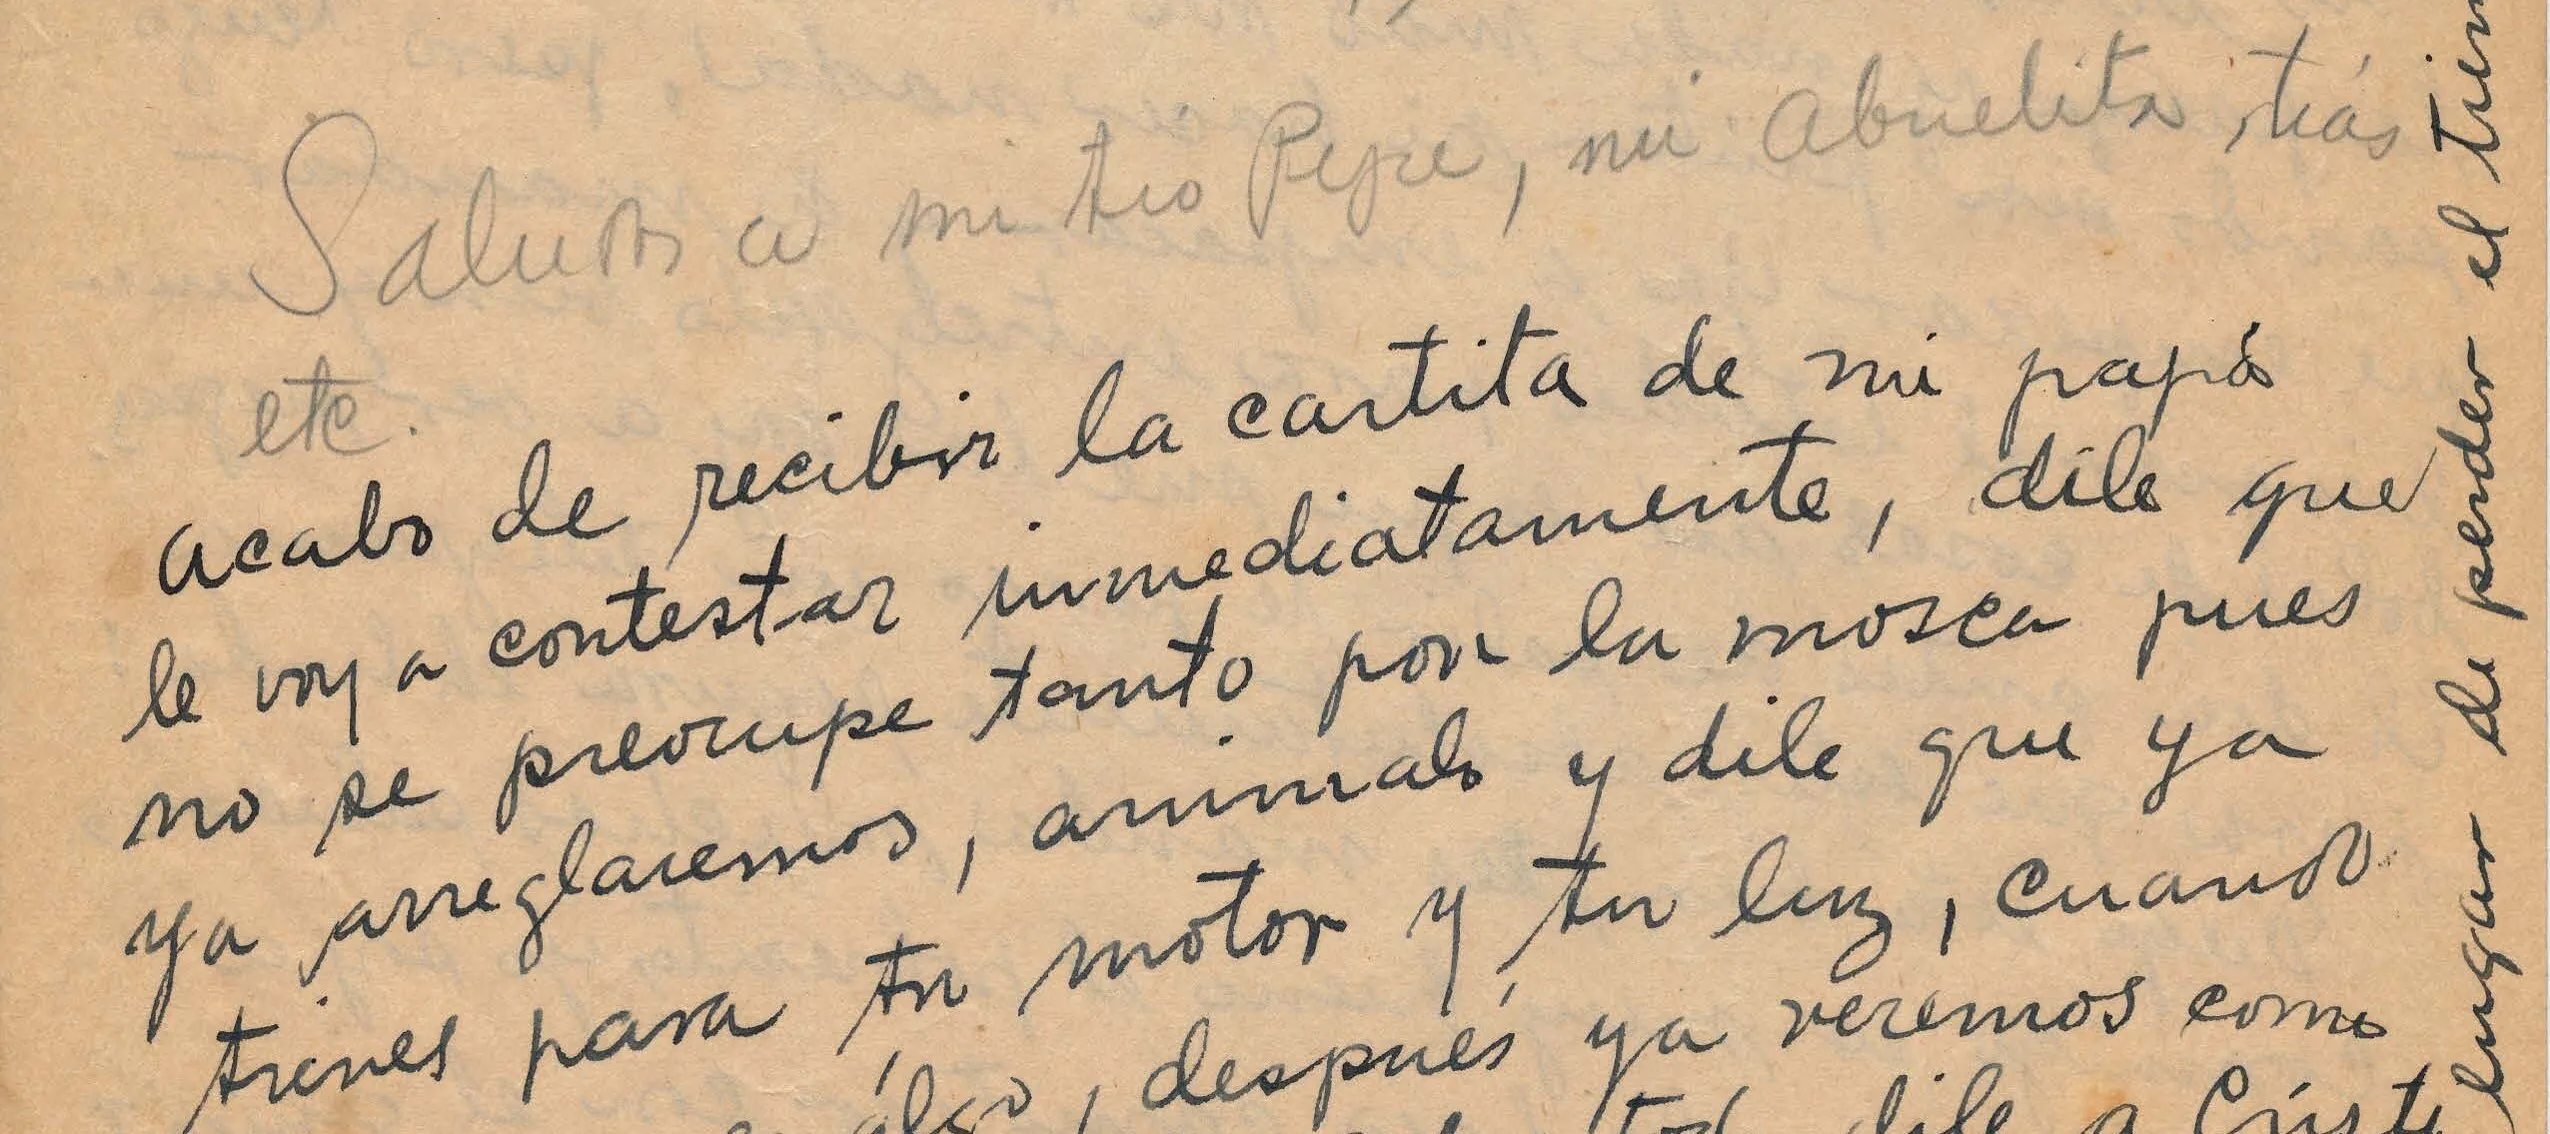 Saludos a mi tio Pepe, mi abuelita, tías
etc.
acabo de recibir la cartita de mi papá
le voy a contestar inmediatamente, dile que
no se preocupe tanto por la mosca pues
ya arreglaremos, animalo y dile que ya
tienes para tu motor y tu luz, cuando
algo, después ya veremos como
dile a
lugar de perder el